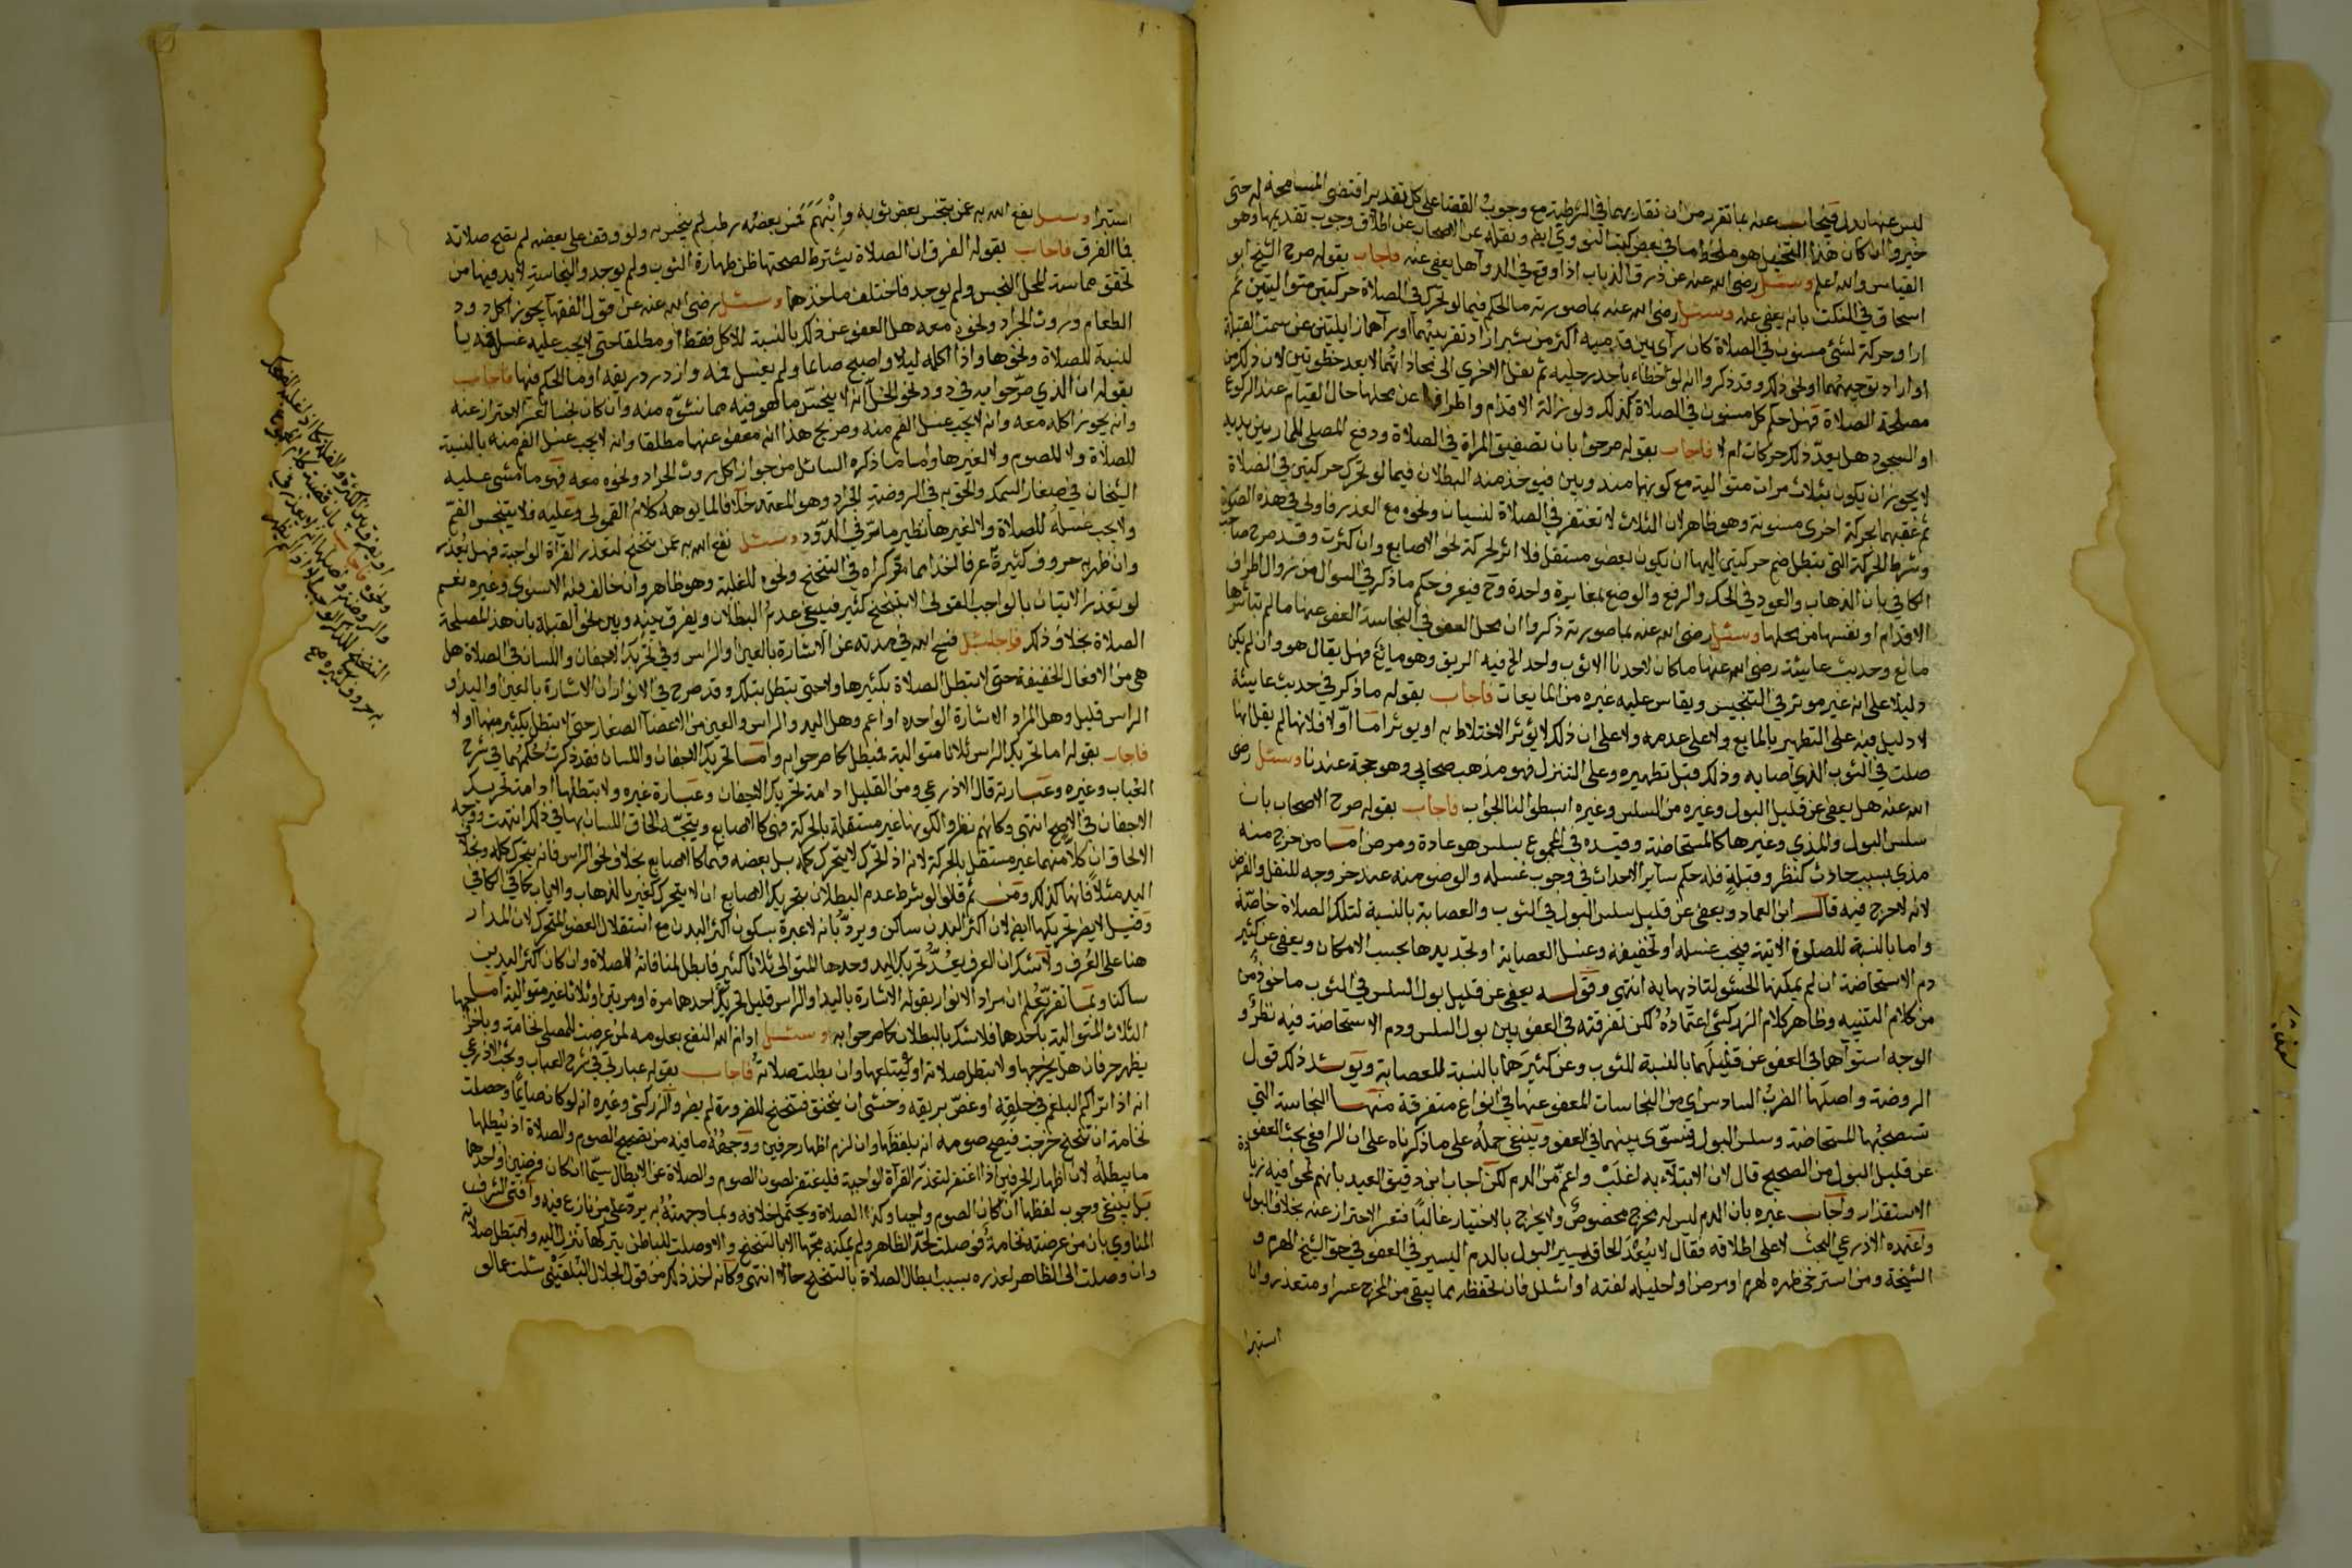 ليس عنها بدل فيجاب عنه بما تقرر من ان تقاربهما في الشرطية مع وجوب القضا على كل تقدير اقتضى المسامحة له حتى
خير وان كان هذا التخيل هو ملحظ ما في بعض كتب النووي ايضا ونقله عن الاصحاب عن اطلاق وجوب تقديمها وهو
القياس والله اعلم وسئل رضي الله عنه عن ذرق الذباب اذا وقع في الدوا هل يعفى عنه فاجاب بقوله صرح الشيخ ابو
اسحاق في النكت بانه يعفى عنه وسئل رضي الله عنه بما صورته ما الحكم فيما لو تحرك في الصلاة حركتين متواليتين ثم
اراد حركة لشئ مسنون في الصلاة كان رآى بين قدميه اكثر من شبر اراد تقريبهما او رآهما زايلتين عن سمت القبلة
او اراد توجيههما او نحو ذلك وقد ذكروا انه لو خطاء باحد رجليه ثم نقل الاخرى الى محاذاتها لا بعد خطوتين لان ذلك من
مصلحة الصلاة فهل حكم كل مسنون في الصلاة كذلك ولو ازالة الاقدام واطرافها عن محلها حال القيام عند الركوع
او السجود هل يعد ذلك حركات ام لا فاجاب بقوله صرحوا بان تصفيق المراة في الصلاة ودفع المصلي للمار بين يديه
لا يجوز ان يكون بثلاث مرات متوالية مع كونهما مندوبين فيوخذ منه البطلان فيما لو تحرك حركتين في الصلاة
ثم عقبهما بحركة اخرى مسنونة وهو ظاهر لان الثلاث لا تغتفر في الصلاة لنسيان ونحوه مع العذر فاولى في هذه الصورة
وشرط الحركة التي يبطل ضم حركتين اليها ان يكون بعضو مستقل فلا اثر لحركة نحو الاصابع وان كثرت وقد صرح صاحب
الكافي بان الذهاب والعود في الحك والرفع والوضع بمغايرة واحدة وح فيعرف حكم ما ذكر في السوال من زوال اطراف
الاقدام او نفسها من محلها وسئل رضي الله عنه بما صورته ذكروا ان محل العفو في النجاسة العفو عنها ما لم تباشرها
مائع وحديث عايشة رضي الله عنها ما كان لاحدنا الا ثوب واحد الخ فيه الريق وهو مائع فهل يقال هو وان لم يكن
دليلا على انه غير موثر في التنجيس ويقاس عليه غيره من المايعات فاجاب بقوله ما ذكر في حديث عايشة
لا دليل فيه على التطهير بالمايع ولا على عدمه ولا على ان ذلك لا يؤثر الاختلاط به او يوثر اما اولا فلانها لم يقل انها
صلت في الثوب الذي اصابه وذلك قبل تطهيره وعلى التنزل فهو مذهب صحابي وهو حجة عندنا وسئل رضي
الله عنه هل يعفى عن قليل البول وغيره من السلس وغيره ابسطوا لنا الجواب فاجاب بقوله صرح الاصحاب بان
سلس البول والمذي وغيرها كالمستحاضة وقيده في المجموع بسلس هو عادة ومرض اما من خرج منه
مذي بسبب حادث كنظر وقبلة فله حكم سآير الاحداث في وجوب غسله والوضو منه عند خروجه للنفل والفرض
لانه لا حرج فيه قال ابن العماد ويعفى عن قليل سلس البول في الثوب والعصابة بالنسبة لتلك الصلاة خاصة
واما بالنسبة للصلوة الاتية فيجب غسله او تخفيفه وغسل العصابة او تجديدها بحسب الامكان ويعفى عن كثير
دم الاستحاضة ان لم يمكنها الحشو لتاذيها به انتهى وقوله يعفى عن قليل بول السلس في الثوب ماخوذ من
من كلام التنبيه وظاهر كلام الزركشي اعتماده لكن تفرقته في العفو بين بول السلس ودم الاستحاضة فيه نظر و
الوجه استوآهما في العفو عن قليلهما بالنسبة للثوب وعن كثيرهما بالنسبة للعصابة ويويد ذلك قول
الروضة واصلها الضرب السادس اي من النجاسات المعفو عنها في انواع متفرقة منها النجاسة التي
تستصحبها المستحاضة وسلس البول فتسوى بينهما في العفو وينبغي حمله على ما ذكرناه على ان الرافعي بحث العفو
عن قليل البول من الصحيح قال لان الابتلآء به اغلب واعم من الدم لكن اجاب ابن دقيق العيد بانهم لمحوا فيه زيادة
الاستقذار واجاب غيره بان الدم ليس له مخرج مخصوص ولا يخرج بالاختيار غالبا فتعسر الاحتراز عنه بخلاف البول
واعتمده الاذرعي البحث لا على اطلاقه فقال لا يبعد الحاق يسير البول بالدم اليسير في العفو في حق الشيخ الهرم و
الشيخة ومن استرخى ظهره لهرم او مرض او احليله لفته او اشلل فان تحفظه مما يبقى من المخرج عسر او متعذر وان
استبرا
استبرا وسئل نفع الله به عن من تنجس بعض ثوبه وانبهم فمس بعضه رطب لم ينجس به ولو وقف على بعضه لم تصح صلاته
فما الفرق فاجاب بقوله الفرق ان الصلاة يشترط لصحتها ظن طهارة الثوب ولم يوجد والنجاسة لا بد فيها من
تحقق مماسة المحل النجس ولم يوجد فاختلف ماخذهما وسئل رضي الله عنه عن قول الفقهآ يجوز اكل دود
الطعام وروث الجراد ونحوه معه هل العفو عن ذلك بالنسبة للاكل فقط او مطلقا حتى لا يجب عليه غسل فمه با
لنسبة للصلاة ونحوها واذا اكله ليلا واصبح صائما ولم يغسل فمه وازدرد ريقه او ما الحكم فيها فاجاب
بقوله ان الذي صرحوا به في دود نحو الخل انه لا ينجس ما هو فيه مما نشؤه منه وان كان نجسا لعسر الاحتراز عنه
وانه يجوز اكله معه وانه لا يجب غسل الفم منه وصريح هذا انه معفو عنها مطلقا وانه لا يجب غسل الفم منه بالنسبة
للصلاة ولا للصوم ولا لغيرها واما ما ذكره السائل من جواز اكل روث الجراد ونحوه معه فهو ما مشى عليه
الشيخان في صغار السمك والحق به في الروضة الجراد وهو المعتمد خلافا لما يوهمه كلام القمولي وعليه فلا يتنجس الفم
ولا يجب غسله للصلاة ولا لغيرها نظير ما مر في الدود وسئل نفع الله به عمن تنحنح لتعذر القرآة الواجبة فهل يعذر
وان ظهر به حروف كثيرة عرفا اخذا مما تقرر كراه في التنحنح ونحوه للغلبة وهو ظاهر وان خالف فيه الاسنوي وغيره نعم
لو تعذر الاتيان بالواجب القولي الا بتنحنح كثير فينبغي عدم البطلان ويفرق بينه وبين نحو القبلة بان هذا لمصلحة
الصلاة بخلاف ذلك فاجاب سئل فسح الله في مدته عن الاشارة بالعين او الراس وفي تحريك الاجفان واللسان في الصلاة هل
هي من الافعال الخفيفة حتى لا تبطل الصلاة بكثيرها ولا حتى يتبطل بتلك وقد صرح في الانوار ان الاشارة بالعين او اليد او
الراس قليل وهل المراد الاشارة الواحدة او اعم وهل اليد والراس والعين من الاعضآ الصغار حتى لا تبطل بكثير منها او لا
فاجاب بقوله اما تحريك الراس ثلاثا متوالية فمبطل كما صرحوا به واما تحريك الاجفان واللسان فقد ذكرت حكمهما في شرح
العباب وغيره وعبارته قال الاذرعي ومن القليل ادامة تحريك الاجفان وعبارة غيره ولا يبطلها ادامة تحريك
الاجفان في الاصح انتهى وكانهم نظروا لكونها غير مستقلة بالحركة فهي كالاصابع ويتجه الحاق اللسان بها في ذلك انتهت ووجه
الالحاق ان كلا منهما غير مستقل بالحركة لانه اذا تحرك لا يتحرك كله بل بعضه فهما كالاصابع بخلاف نحو الراس فانه يتحرك كله ونحو
اليد مثلا فانها كذلك ومن ثم قالوا شرط عدم البطلان بتحريك الاصابع ان لا يتحرك كغير بالذهاب والاياب كما في الكافي
وقيل لا يضر تحريكها ايضا لان اكثر اليدن ساكن ويرد بانه لا عبرة بسكون اكثر البدن مع استقلال العضو المتحرك لان المدار
هنا على العرف ولا شك ان العرف يعد تحريك اليد وحدها المتوالي ثلاثا كثير فابطل لمنافاته الصلاة وان كان اكثر البدن
ساكنا وبما تقرر علم ان مراد الانوار بقوله الاشارة باليد او الراس قليل تحريك احدهما مرة او مرتين او ثلاثا غير متوالية اما
الثلاث المتوالية باحدها فلا شك بالبطلان كما صرحوا به وسئل ادام الله النفع بعلومه لمن عرضت للمصلي نخامة وباخراجها
يظهر حرفان هل يخرجها ولا تبطل صلاته او يبتلعها وان بطلت صلاته فاجاب بقوله عبارتي في شرح العباب وبحث الاذرعي
انه اذا تراكم البلغم في حلقه او غص بريقه وخشي ان يختنق فتنحنح للضرورة لم يضر والزركشي وغيره انه لو كان صايما وحصلت
نخامة ان تنحنح خرجت فيصح صومه انه يلفظها وان لزم اظهار حرفين ووجهه ما فيه من تصحيح الصوم والصلاة اذ يبطلها
ما يبطله لان اظهار الحرفين اذا اغتفر لتعذر القرآة الواجبة فليغتفر لصون الصوم والصلاة عن الابطال سيما ان كان فرضين او احدهما
بل ينبغي وجوب لفظها ان كان الصوم واجبا وكذا الصلاة ويحتمل خلافه وبما وجهته به يرد على من نازع فيه وافتى الشرف
المناوي بان من عرضته نخامة فوصلت لحد الظاهر ولم يمكنه مجها الا بالتنحنح والا وصلت للباطن يتركها تنزل اليه ولا تبطل صلاته
وان وصلت الى الظاهر لعذره بسبب ابطال الصلاة بالتنحنح حالا انتهى وكانه اخذ ذلك من قول الجلال البلقيني سئلت عما لو